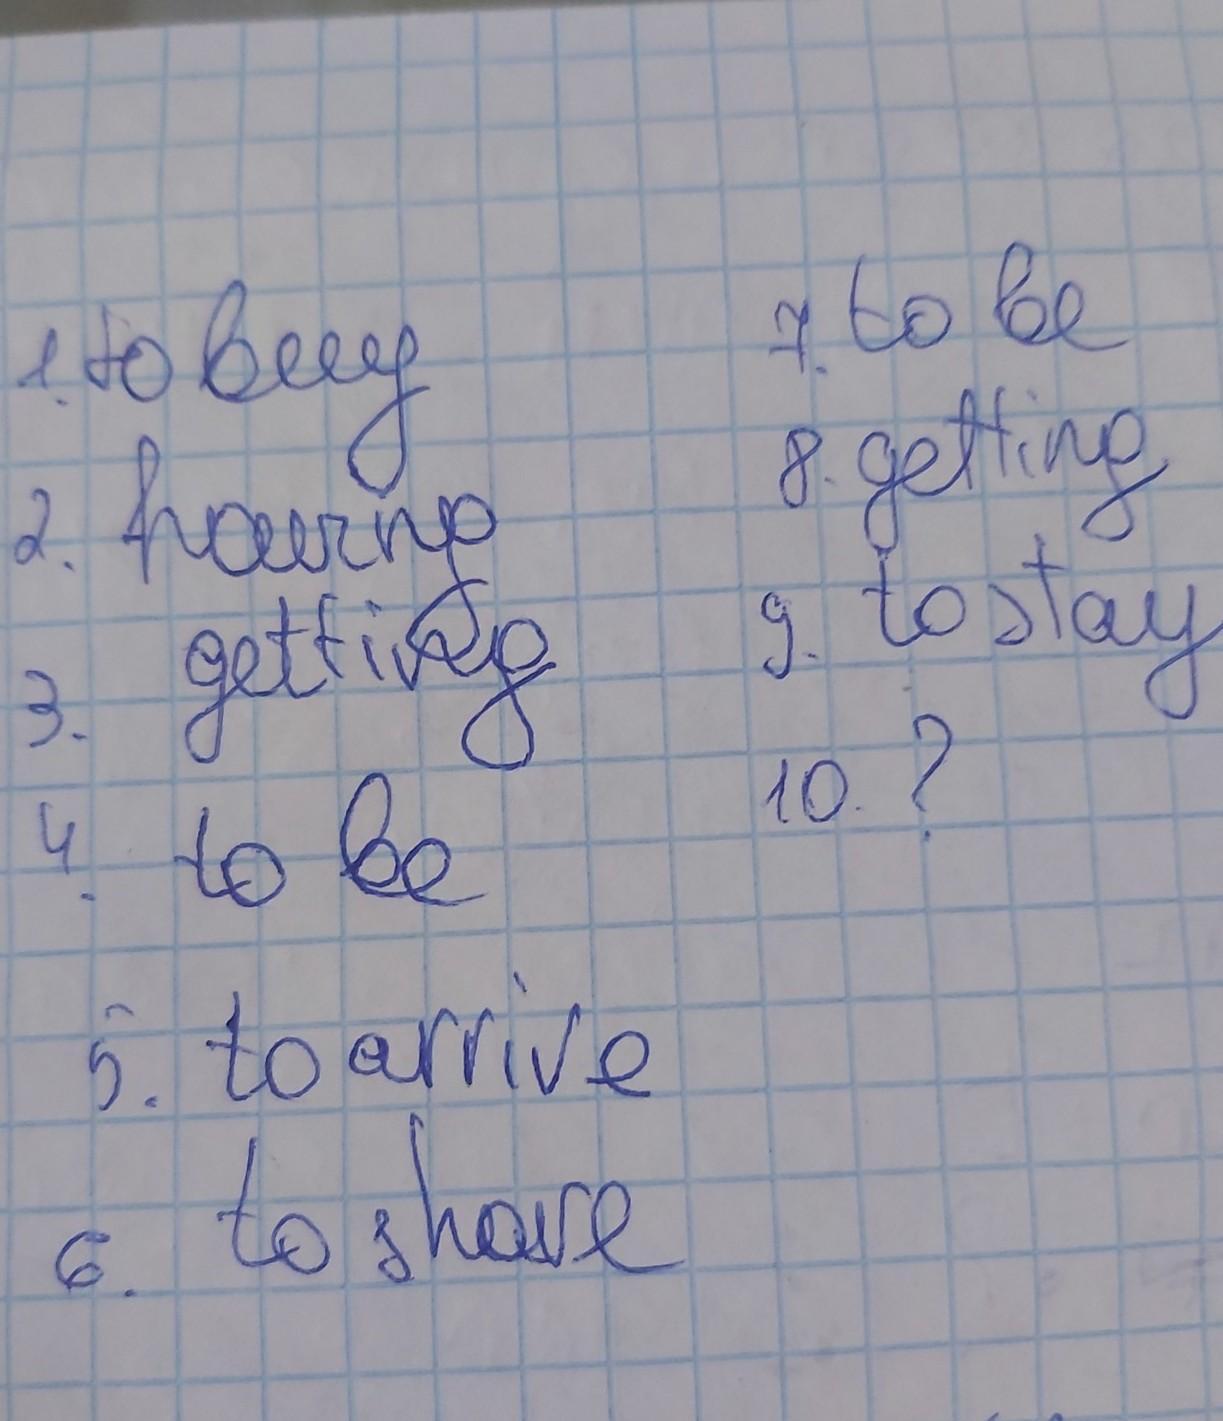 1. to buy
2. having
3. getting
4. to be
5. to arrive
6. to share
7. to be
8. getting
9. to stay
10. ?